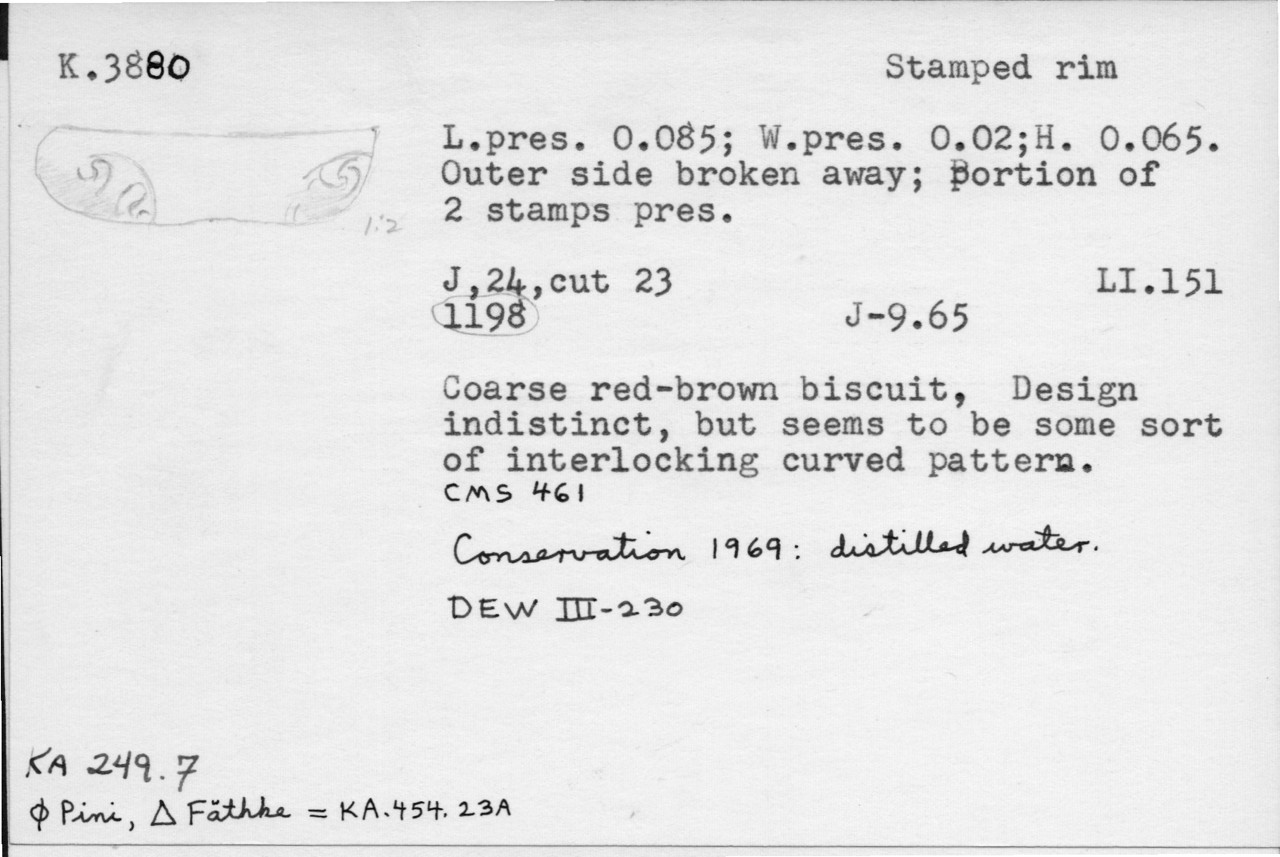 K.3880 Stamped rim
L.pres. 0.085; W.pres. 0.02;H. 0.065.
Outer side broken away; portion of
2 stamps pres.
1:2
J,24,cut 23 LI.151
1198 J-9.65
Coarse red-brown biscuit, Design
indistinct, but seems to be some sort
of interlocking curved pattern.
CMS 461
Conservation 1969: distilled water.
DEW III-230
KA 249.7
φ Pini, Δ Fäthke = KA.454.23A